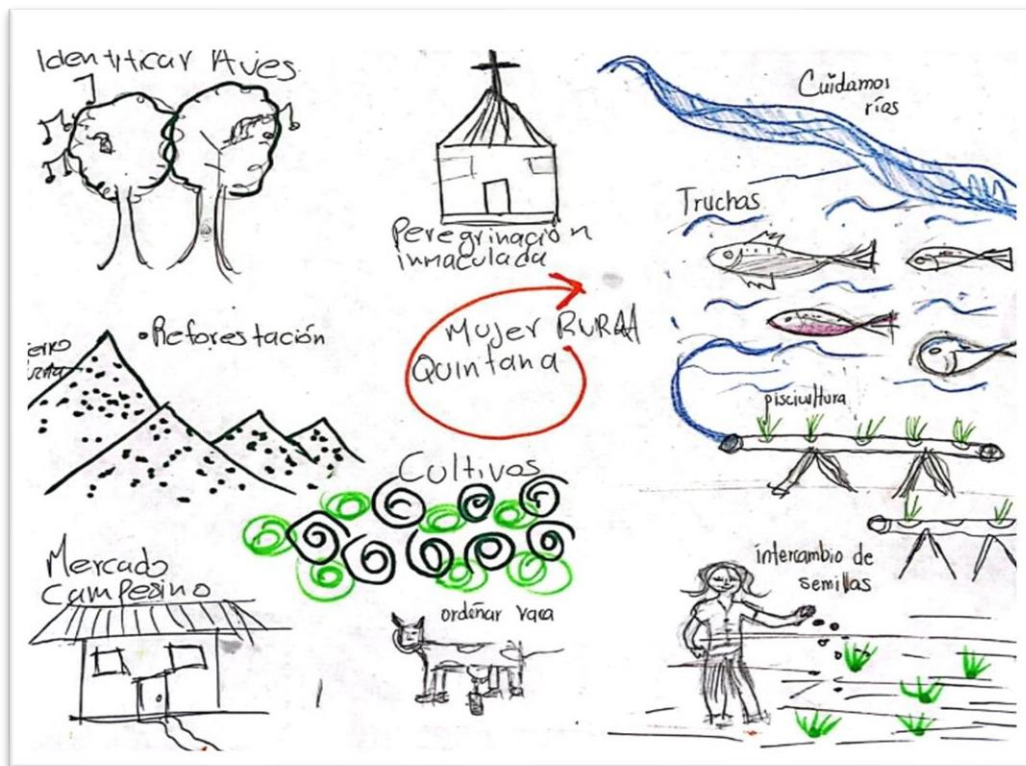 Identificar Aves
Peregrinación
inmaculada
Cuidamos
ríos
Truchas
Mujer RURAL
Quintana
•Reforestación
piscicultura
Cultivos
Mercado
Campesino
ordeñar vaca
intercambio de
semillas